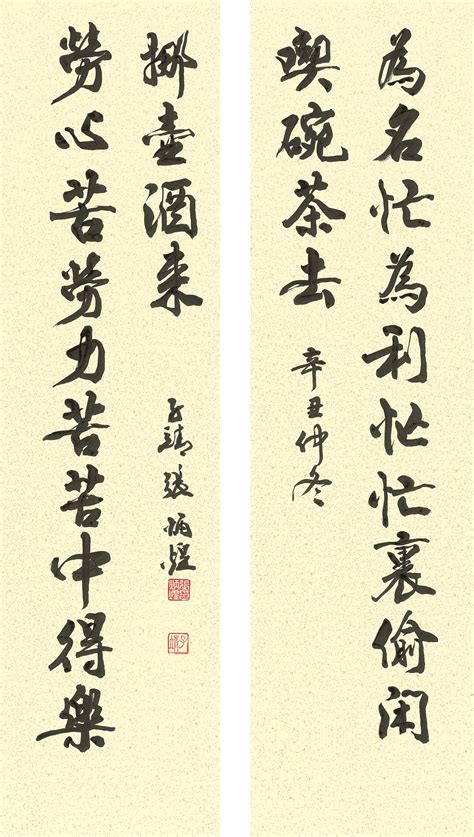 為名忙為利忙忙裏偷閑
喫碗茶去
辛丑仲冬
勞心苦勞力苦苦中得樂
挪壺酒来
子靖張炳煌